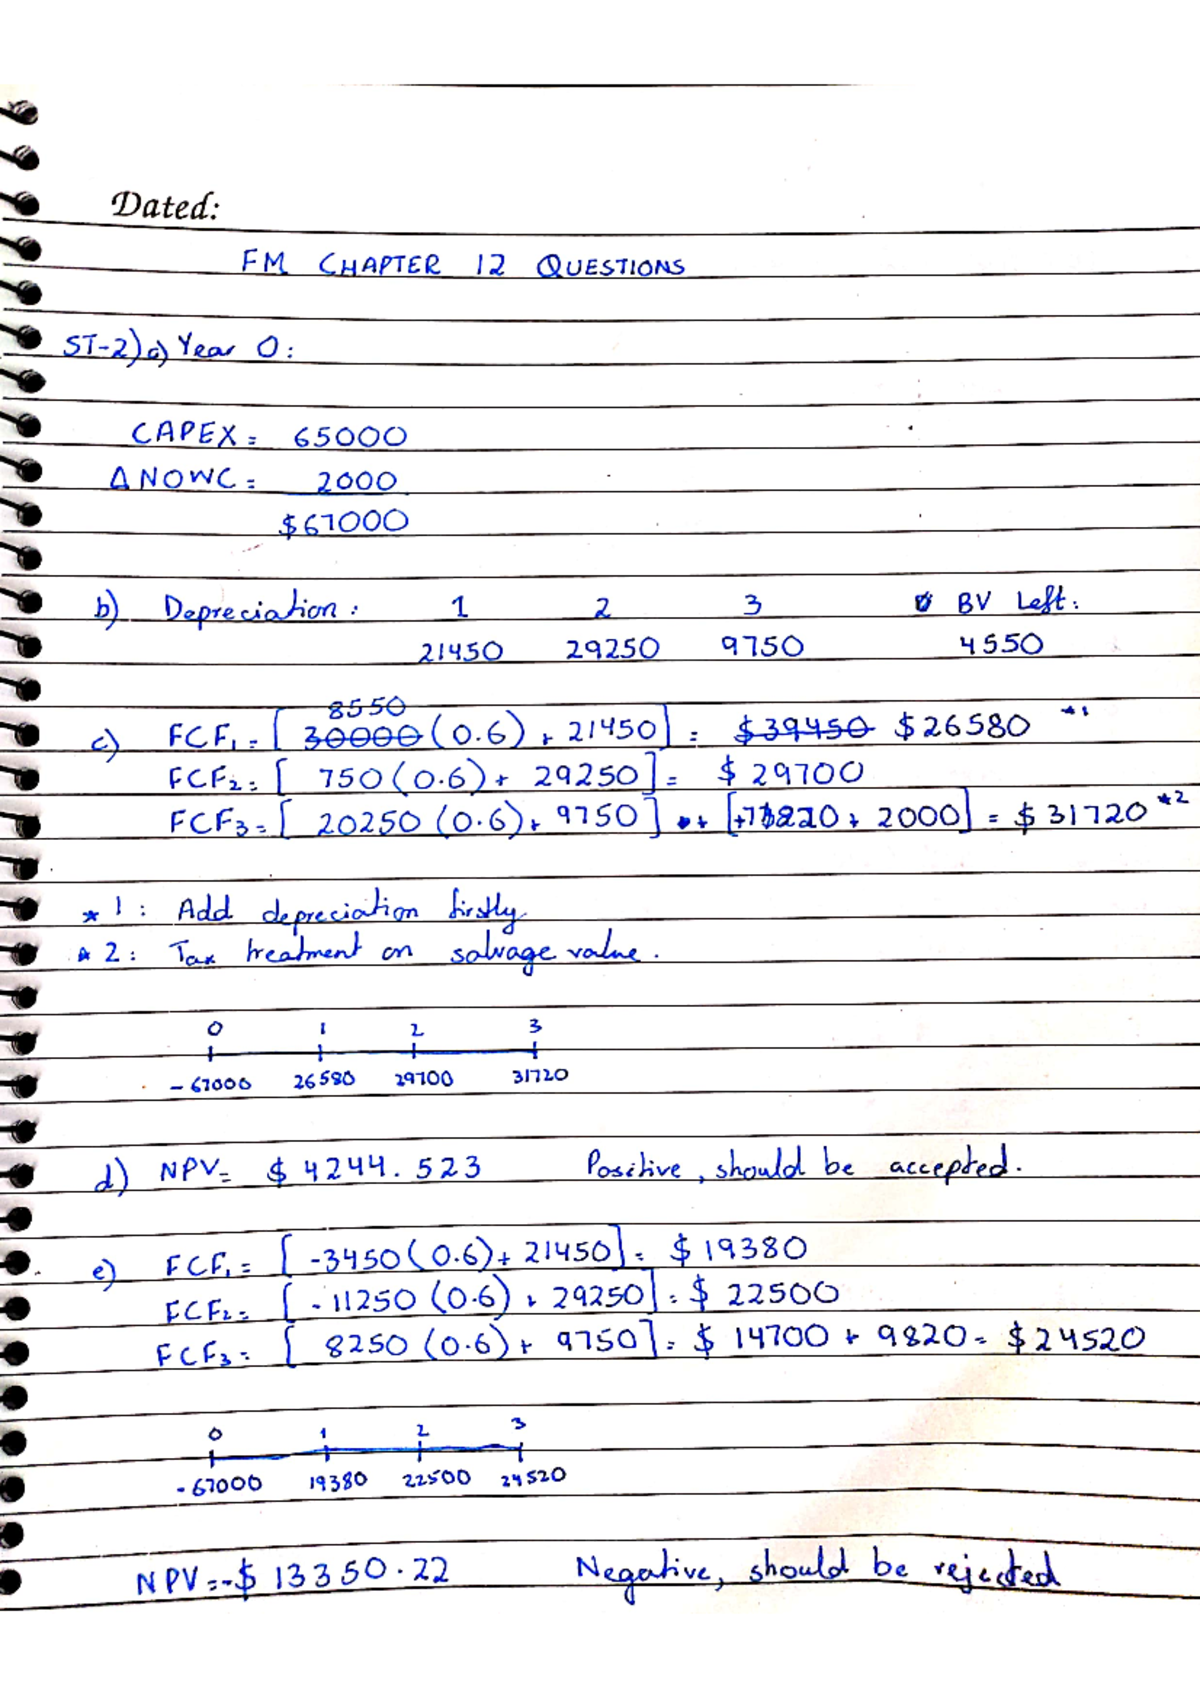 Dated:
FM CHAPTER 12 QUESTIONS
ST-2) a) Year 0:
CAPEX = 65000
Δ NOWC = 2000
$67000
b) Depreciation: 1 2 3 BV Left:
21450 29250 9750 4550
8550
c) FCF1 = [ 30000 (0.6) + 21450] = $39450 $26580 *1
FCF2 = [ 750 (0.6) + 29250] = $ 29700
FCF3 = [ 20250 (0.6) + 9750] + [+7820 + 2000] = $ 31720 *2
* 1: Add depreciation firstly
* 2: Tax treatment on salvage value.
0 1 2 3
- 67000 26580 29700 31720
d) NPV = $ 4244.523 Positive, should be accepted.
e) FCF1 = [ -3450 (0.6) + 21450] = $ 19380
FCF2 = [ - 11250 (0.6) + 29250] = $ 22500
FCF3 = [ 8250 (0.6) + 9750] = $ 14700 + 9820 = $24520
0 1 2 3
- 67000 19380 22500 24520
NPV = -$ 13350.22 Negative, should be rejected